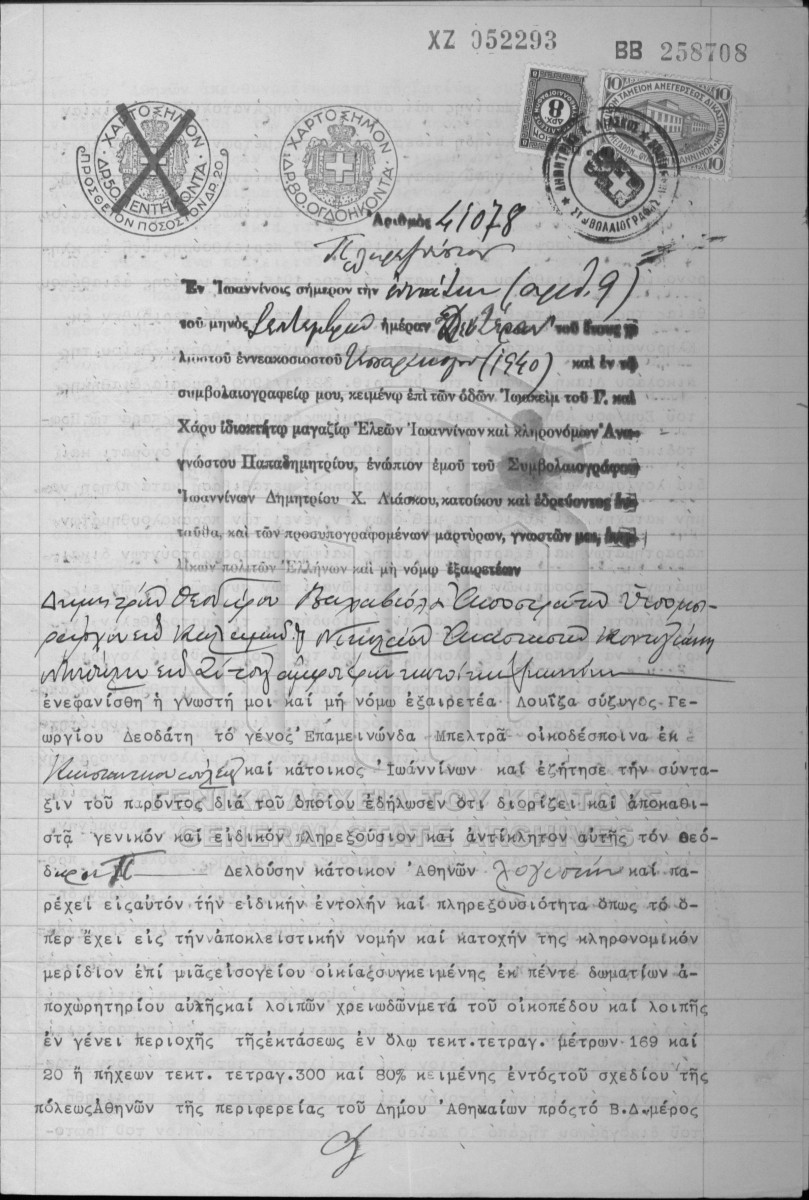 ΧΖ 052293
ΒΒ 258708
ΧΑΡΤΟΣΗΜΟΝ
ΔΡ.50 ΠΕΝΤΗΚΟΝΤΑ
ΠΡΟΣΘΕΤΟΝ ΠΟΣΟΣΤΟΝ ΔΡ. 20
ΧΑΡΤΟΣΗΜΟΝ
ΔΡ.80. ΟΓΔΟΗΚΟΝΤΑ
8
10 ΤΑΜΕΙΟΝ ΑΝΕΓΕΡΣΕΩΣ 10
10 10
ΔΗΜΗΤΡΙΟΣ Χ. ΛΙΑΣΚΟΣ
ΣΥΜΒΟΛΑΙΟΓΡΑΦΟΣ
Ἀριθμὸς 41078
Πληρεξούσιον
Ἐν Ἰωαννίνοις σήμερον τὴν ἐννάτην (ἀριθ. 9)
τοῦ μηνὸς Σεπτεμβρίου ἡμέραν Δευτέραν τοῦ ἔτους χι
λιοστοῦ ἐννεακοσιοστοῦ τεσσαρακοστοῦ (1940) καὶ ἐν τῷ
συμβολαιογραφείῳ μου, κειμένῳ ἐπὶ τῶν ὁδῶν Ἰωακεὶμ τοῦ Γ. καὶ
Χάρυ ἰδιοκτήτῳ μαγαζίῳ Ἐλεῶν Ἰωαννίνων καὶ κληρονόμων Ἀνα-
γνώστου Παπαδημητρίου, ἐνώπιον ἐμοῦ τοῦ Συμβολαιογράφου
Ἰωαννίνων Δημητρίου Χ. Λιάσκου, κατοίκου καὶ ἑδρεύοντος ἐν-
ταῦθα, καὶ τῶν προσυπογραφομένων μαρτύρων, γνωστῶν μοι,
πολιτῶν Ἑλλήνων καὶ μὴ νόμῳ ἐξαιρετέων
Δημητρίου Θεοδώρου
Ἀναστασίου
ἀμφοτέρων κατοίκων Ἰωαννίνων
ἐνεφανίσθη ἡ γνωστή μοι καί μή νόμῳ ἐξαιρετέα Λουΐζα σύζυγος Γε-
ωργίου Δεοδάτη τό γένος Ἐπαμεινώνδα Μπελτρᾶ οἰκοδέσποινα ἐκ
Κωνσταντινουπόλεως καί κάτοικος Ἰωαννίνων καί ἐζήτησε τήν σύντα-
ξιν τοῦ παρόντος διά τοῦ ὁποίου ἐδήλωσεν ὅτι διορίζει καί ἀποκαθι-
στᾷ γενικόν καί εἰδικόν πληρεξούσιον καί ἀντίκλητον αὐτῆς τόν Θεό-
δωρον Π Δελούσην κάτοικον Ἀθηνῶν λογιστήν καί πα-
ρέχει εἰςαὐτόν τήν εἰδικήν ἐντολήν καί πληρεξουσιότητα ὅπως τό ὅ-
περ ἔχει εἰς τήν ἀποκλειστικήν νομήν καί κατοχήν της κληρονομικόν
μερίδιον ἐπί μιᾶςεἰσογείου οἰκίαςσυγκειμένης ἐκ πέντε δωματίων ἀ-
ποχωρητηρίου αὐλῆςκαί λοιπῶν χρειωδῶνμετά τοῦ οἰκοπέδου καί λοιπῆς
ἐν γένει περιοχῆς τῆςἐκτάσεως ἐν ὅλῳ τεκτ.τετραγ. μέτρων 169 καί
20 ἤ πήχεων τεκτ. τετραγ.300 καί 80% κειμένης ἐντόςτοῦ σχεδίου τῆς
πόλεωςἈθηνῶν τῆς περιφερείας τοῦ Δήμου Ἀθηναίων πρόςτό Β.Δ.μέρος
ΓΕΝΙΚΑ ΑΡΧΕΙΑ ΤΟΥ ΚΡΑΤΟΥΣ
GENERAL STATE ARCHIVES